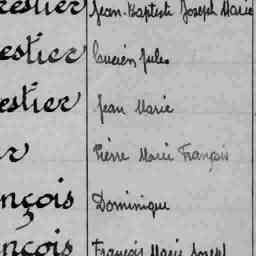 restier Jean-Baptiste Joseph Marie
estier Lucien Jules
estier Jean Marie
r Pierre Marie François
nçois Dominique
nçois François Marie Joseph